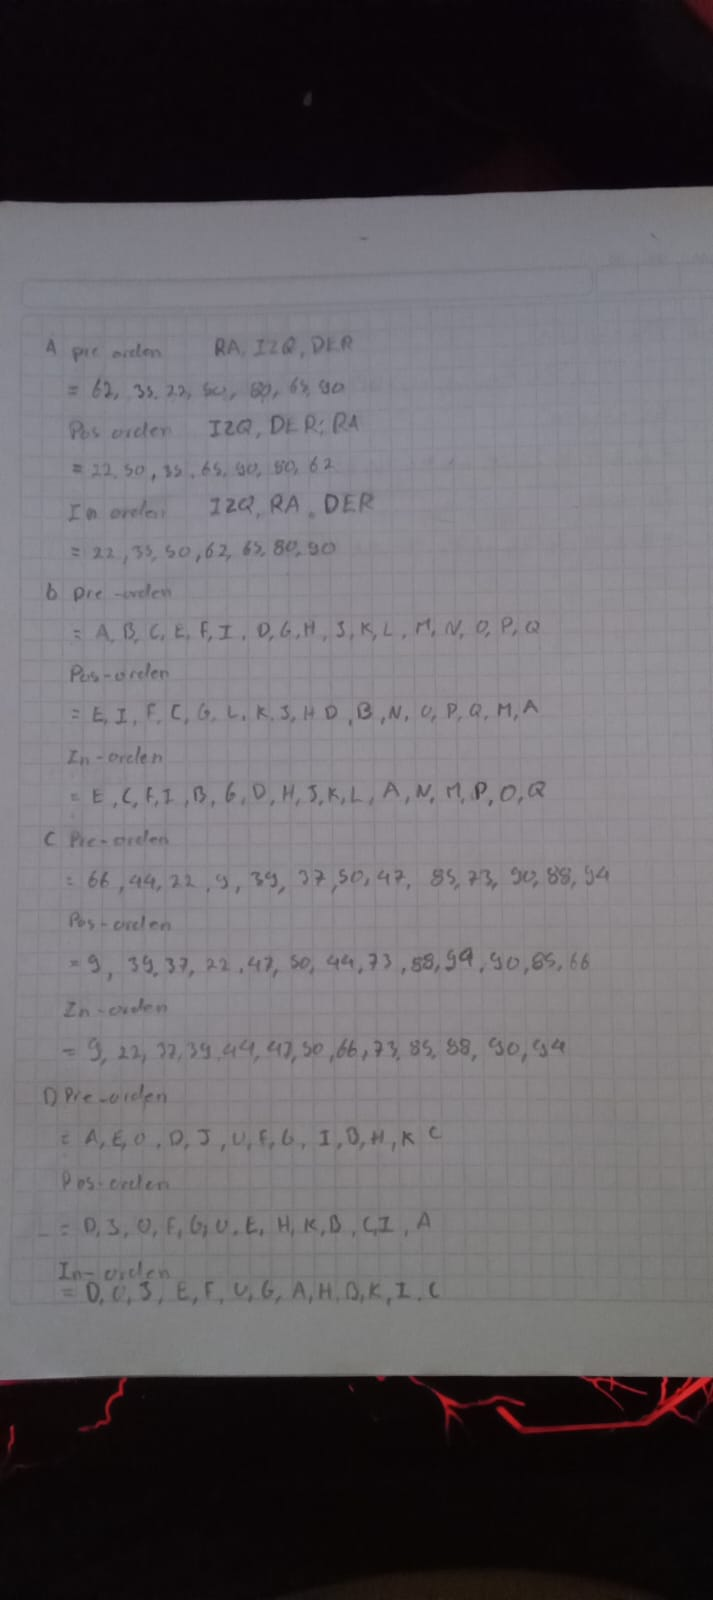 A pre orden RA, IZQ, DER
= 62, 35, 22, 50, 80, 65, 90
Pos orden IZQ, DER; RA
= 22, 50, 35, 65, 90, 80, 62
In orden IZQ, RA, DER
= 22, 35, 50, 62, 65, 80, 90
b pre -orden
= A, B, C, E, F, I, D, G, H, J, K, L, M, N, O, P, Q
Pos-orden
= E, I, F, C, G, L, K, J, H D, B, N, O, P, Q, M, A
In-orden
= E, C, F, I, B, G, D, H, J, K, L, A, N, M, P, O, Q
C Pre-orden
= 66, 44, 22, 9, 39, 37, 50, 47, 85, 73, 90, 88, 94
Pos-orden
= 9, 39, 37, 22, 47, 50, 44, 73, 88, 94, 90, 85, 66
In-orden
= 9, 22, 37, 39, 44, 47, 50, 66, 73, 85, 88, 90, 94
D) Pre-orden
= A, E, O, D, J, U, F, G, I, B, H, K C
Pos-orden
= D, J, O, F, G, U, E, H, K, B, C, I, A
In-orden
= D, O, J, E, F, U, G, A, H, B, K, I, C